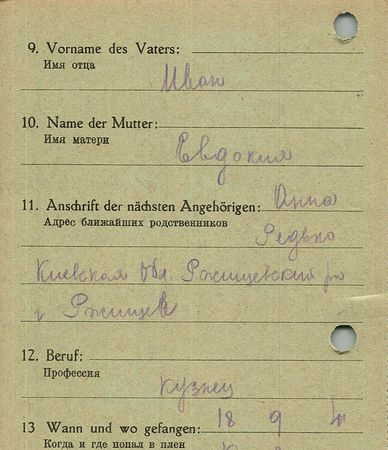 9. Vorname des Vaters:
Имя отца
Иван
10. Name der Mutter:
Имя матери
Евдокия
11. Anschrift der nächsten Angehörigen: Анна
Адрес ближайших родственников
Редько
Киевская Обл. Ржищевский р-н
г Ржищев
12. Beruf:
Профессия
кузнец
13 Wann und wo gefangen: 18 9
Когда и где попал в плен